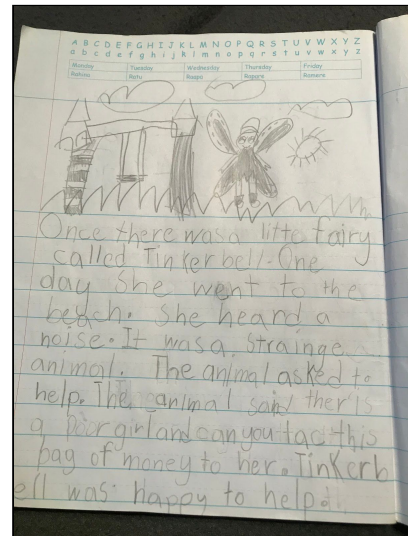 A B C D E F G H I J K L M N O P Q R S T U V W X Y Z
a b c d e f g h i j k l m n o p q r s t u v w x y z
Monday Tuesday Wednesday Thursday Friday
Rahina Ratu Raapa Rapare Ramere
Once there was a litto fairy
called Tinkerbell. One
day She went to the
beach. She heard a
noise. It was a strainge
animal. The animal asked to
help. The animal said ther is
a poor girl and can you tac this
bag of money to her. Tinkerb
ell was happy to help.